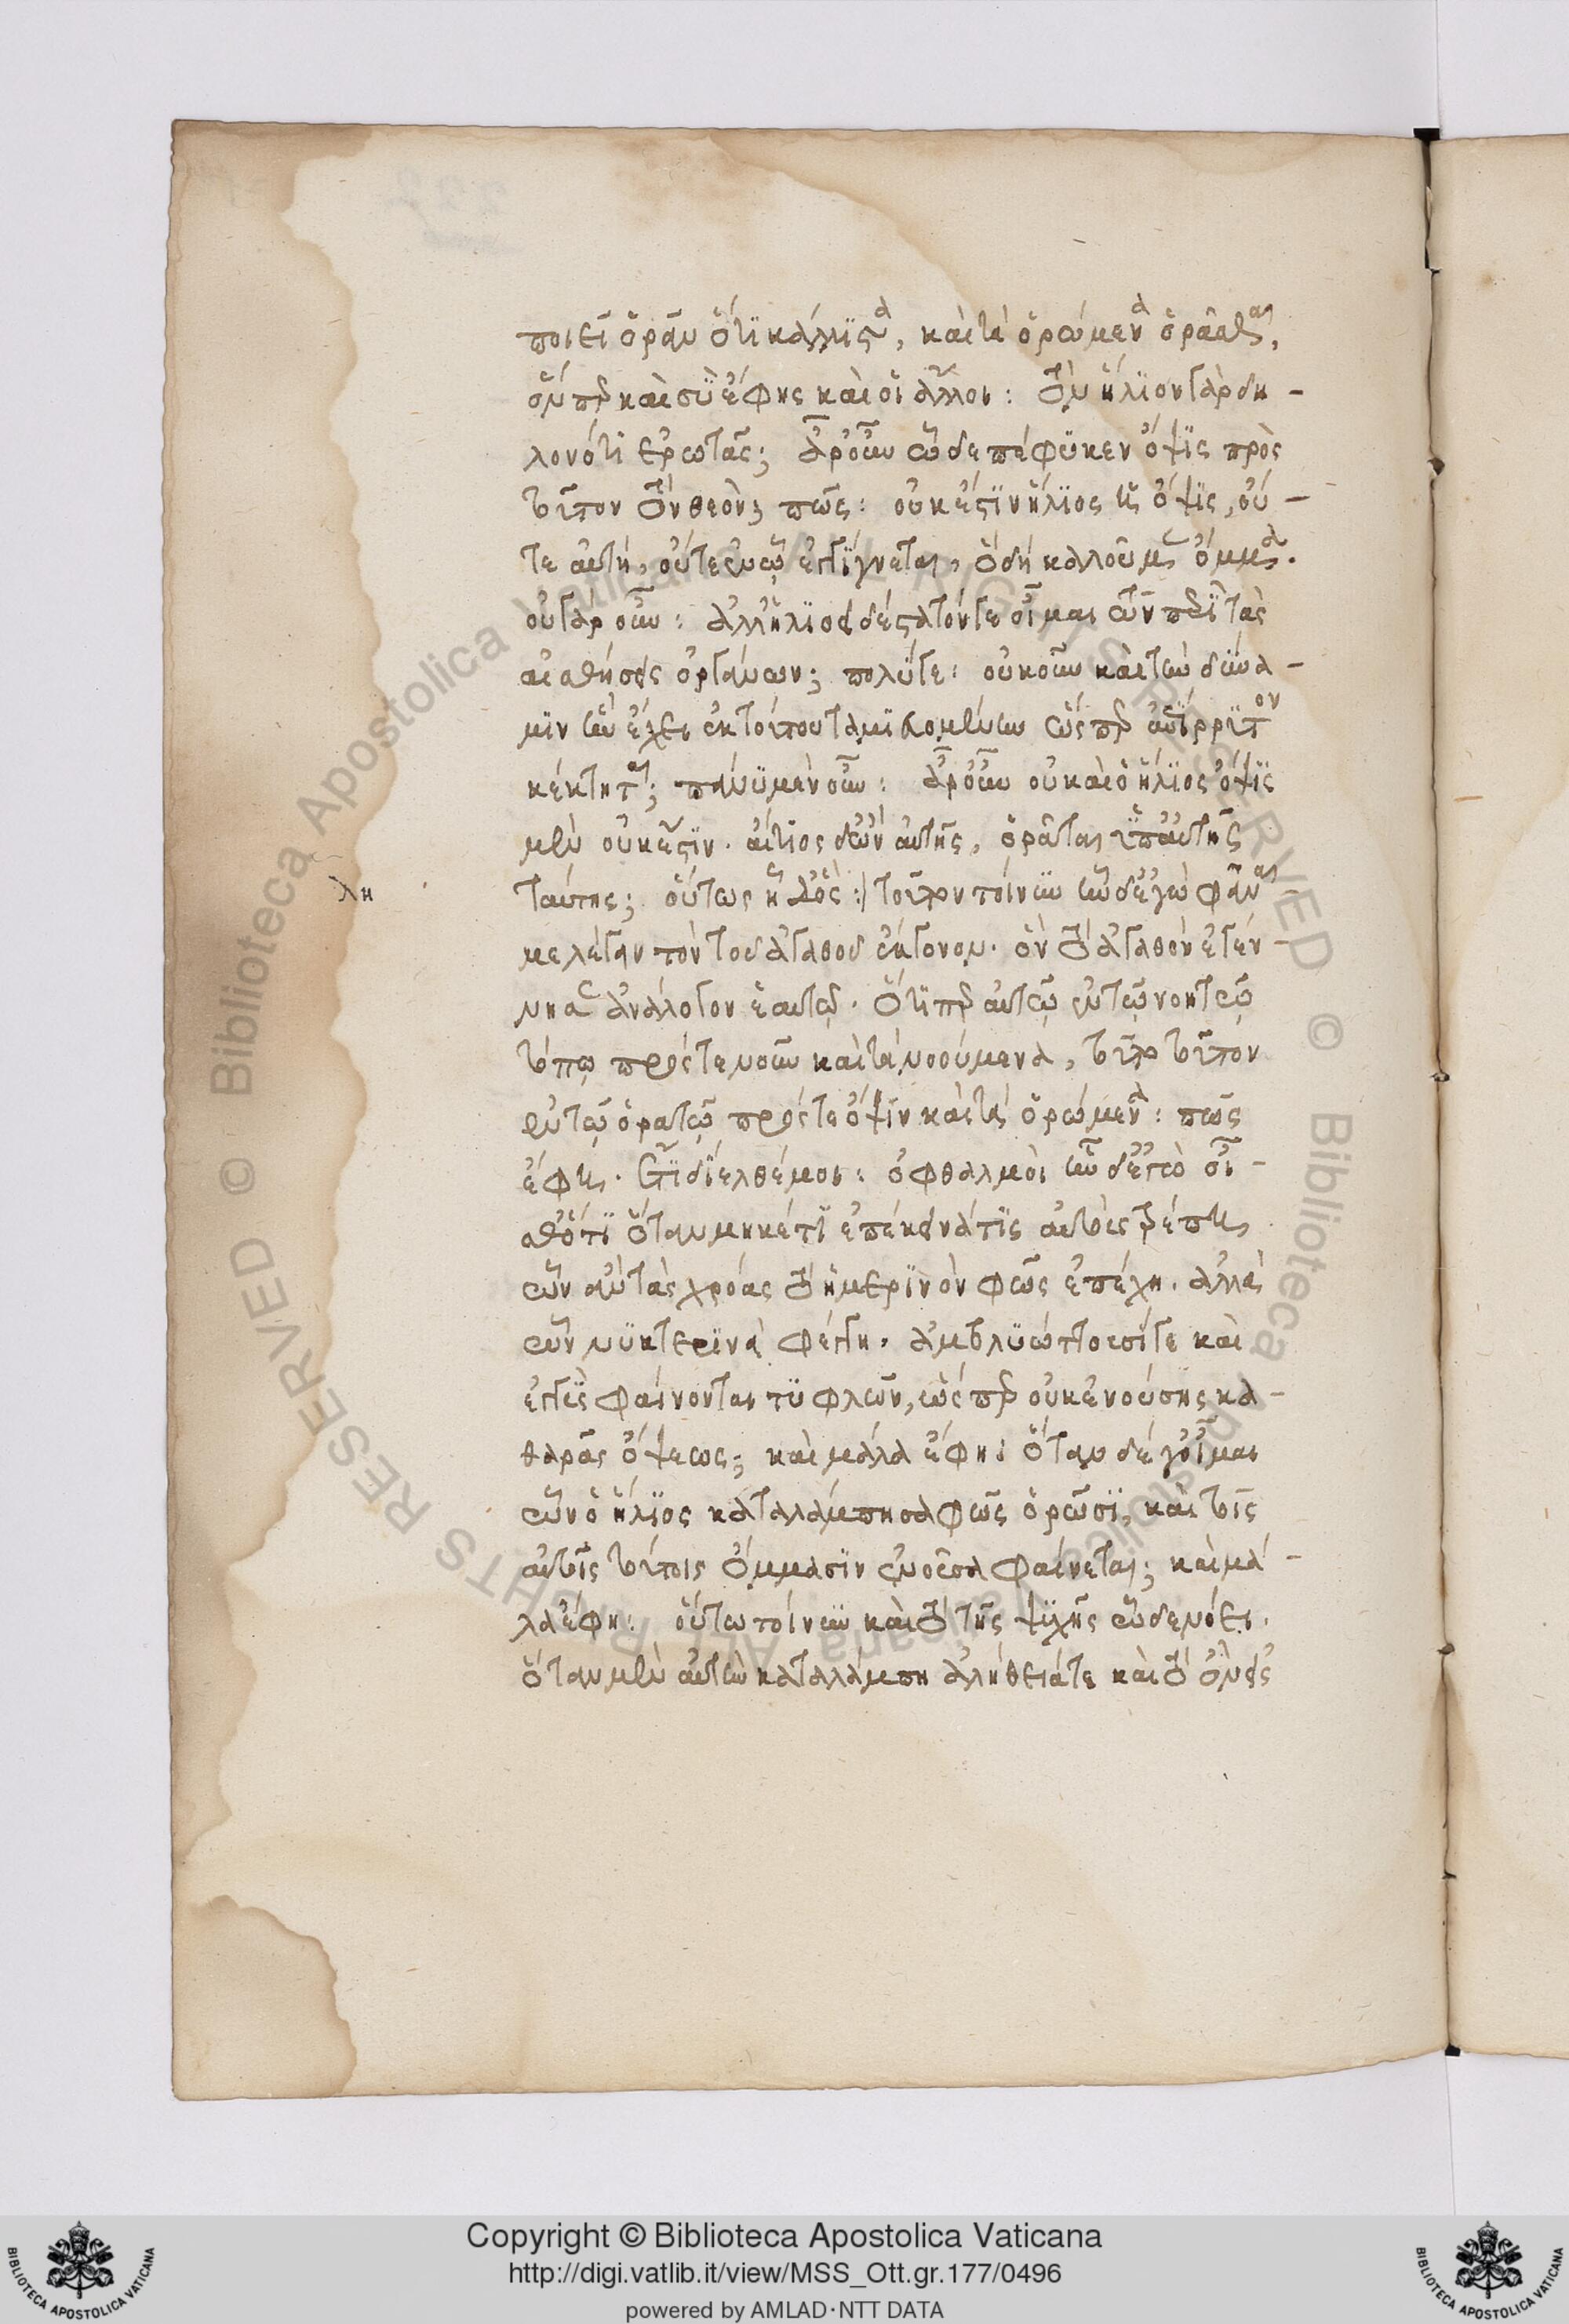 ποιεῖ ὁρᾶν ὅτι κάλλιστα, καὶ τὰ ὁρώμενα ὁρᾶσθαι,
ὅνπερ καὶ σὺ ἔφης καὶ οἱ ἄλλοι: τὸν ἥλιον γὰρ δη-
λονότι ἐρωτᾷς; ἆρ' οὖν ὧδε πέφυκεν ὄψις πρὸς
τοῦτον τὸν θεόν; πῶς: οὐκ ἔστιν ἥλιος ἡ ὄψις, οὔ-
τε αὐτὴ, οὔτε ἐν ᾧ ἐγγίγνεται, ὃ δὴ καλοῦμεν ὄμμα.
οὐ γὰρ οὖν: ἀλλ' ἡλιοειδέστατόν γε οἶμαι τῶν περὶ τὰς
αἰσθήσεις ὀργάνων; πολύ γε: οὐκοῦν καὶ τὴν δύνα-
μιν ἣν ἔχει ἐκ τούτου ταμιευομένην ὥσπερ ἐπίρρυτον
κέκτηται; πάνυ μὲν οὖν: ἆρ' οὖν οὐ καὶ ὁ ἥλιος ὄψις
μὲν οὐκ ἔστιν. αἴτιος δ' ὢν αὐτῆς, ὁρᾶται ὑπ' αὐτῆς
ταύτης; οὕτως ἦ δ' ὅς: τοῦτον τοίνυν ἦν δ' ἐγὼ φάναι
λη
με λέγειν τὸν τοῦ ἀγαθοῦ ἔκγονον. ὃν τὸ ἀγαθὸν ἐγέν-
νησεν ἀνάλογον ἑαυτῷ. ὅτιπερ αὐτῷ ἐν τῷ νοητῷ
τόπῳ πρός τε νοῦν καὶ τὰ νοούμενα, τοῦτο τοῦτον
ἐν τῷ ὁρατῷ πρός τε ὄψιν καὶ τὰ ὁρώμενα: πῶς
ἔφη. ἔτι δίελθέ μοι: ὀφθαλμοὶ ἦν δ' ἐγὼ οἶ-
σθ' ὅτι ὅταν μηκέτι ἐπ' ἐκεῖνά τις αὐτοὺς τρέπῃ
ὧν ἂν τὰς χρόας τὸ ἡμερινὸν φῶς ἐπέχῃ. ἀλλὰ
ὧν νυκτερινὰ φέγγη. ἀμβλυώττουσί τε καὶ
ἐγγὺς φαίνονται τυφλῶν, ὥσπερ οὐκ ἐνούσης κα-
θαρᾶς ὄψεως; καὶ μάλα ἔφη: ὅταν δέ γ' οἶμαι
ὧν ὁ ἥλιος καταλάμπῃ σαφῶς ὁρῶσι, καὶ τοῖς
αὐτοῖς τούτοις ὄμμασιν ἐνοῦσα φαίνεται; καὶ μά-
λα ἔφη: οὕτω τοίνυν καὶ τὸ τῆς ψυχῆς ὧδε νόει.
ὅταν μὲν αὐτὴν καταλάμπῃ ἀλήθειά τε καὶ τὸ ὂν εἰς